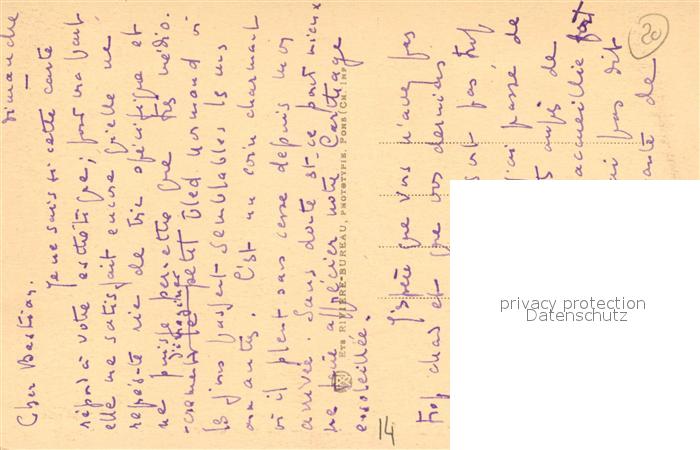 dimanche
Cher Bastian.
Je ne sais si cette carte
répond à votre esthétique; pour ma part
elle me satisfait encore qu'elle ne
représente rien de très spécifique et
ne puisse permettre que très médio-
-crement d'imaginer le petit bled normand où
les jours passent semblables les uns
aux autres. C'est un coin charmant
où il pleut sans cesse depuis mon
arrivée. Sans doute est-ce pour mieux
me faire apprécier notre Carthage
ensoleillée.
J'espère que vous n'avez pas
trop chaud et que vos derniers
sont pas trop
j'ai passé de
auprès de
accueillie fort
ai pas dit
de
20
14
ETS RIVIÈRE-BUREAU, PHOTOTYPIE, PONS (CH. INF.)
privacy protection
Datenschutz